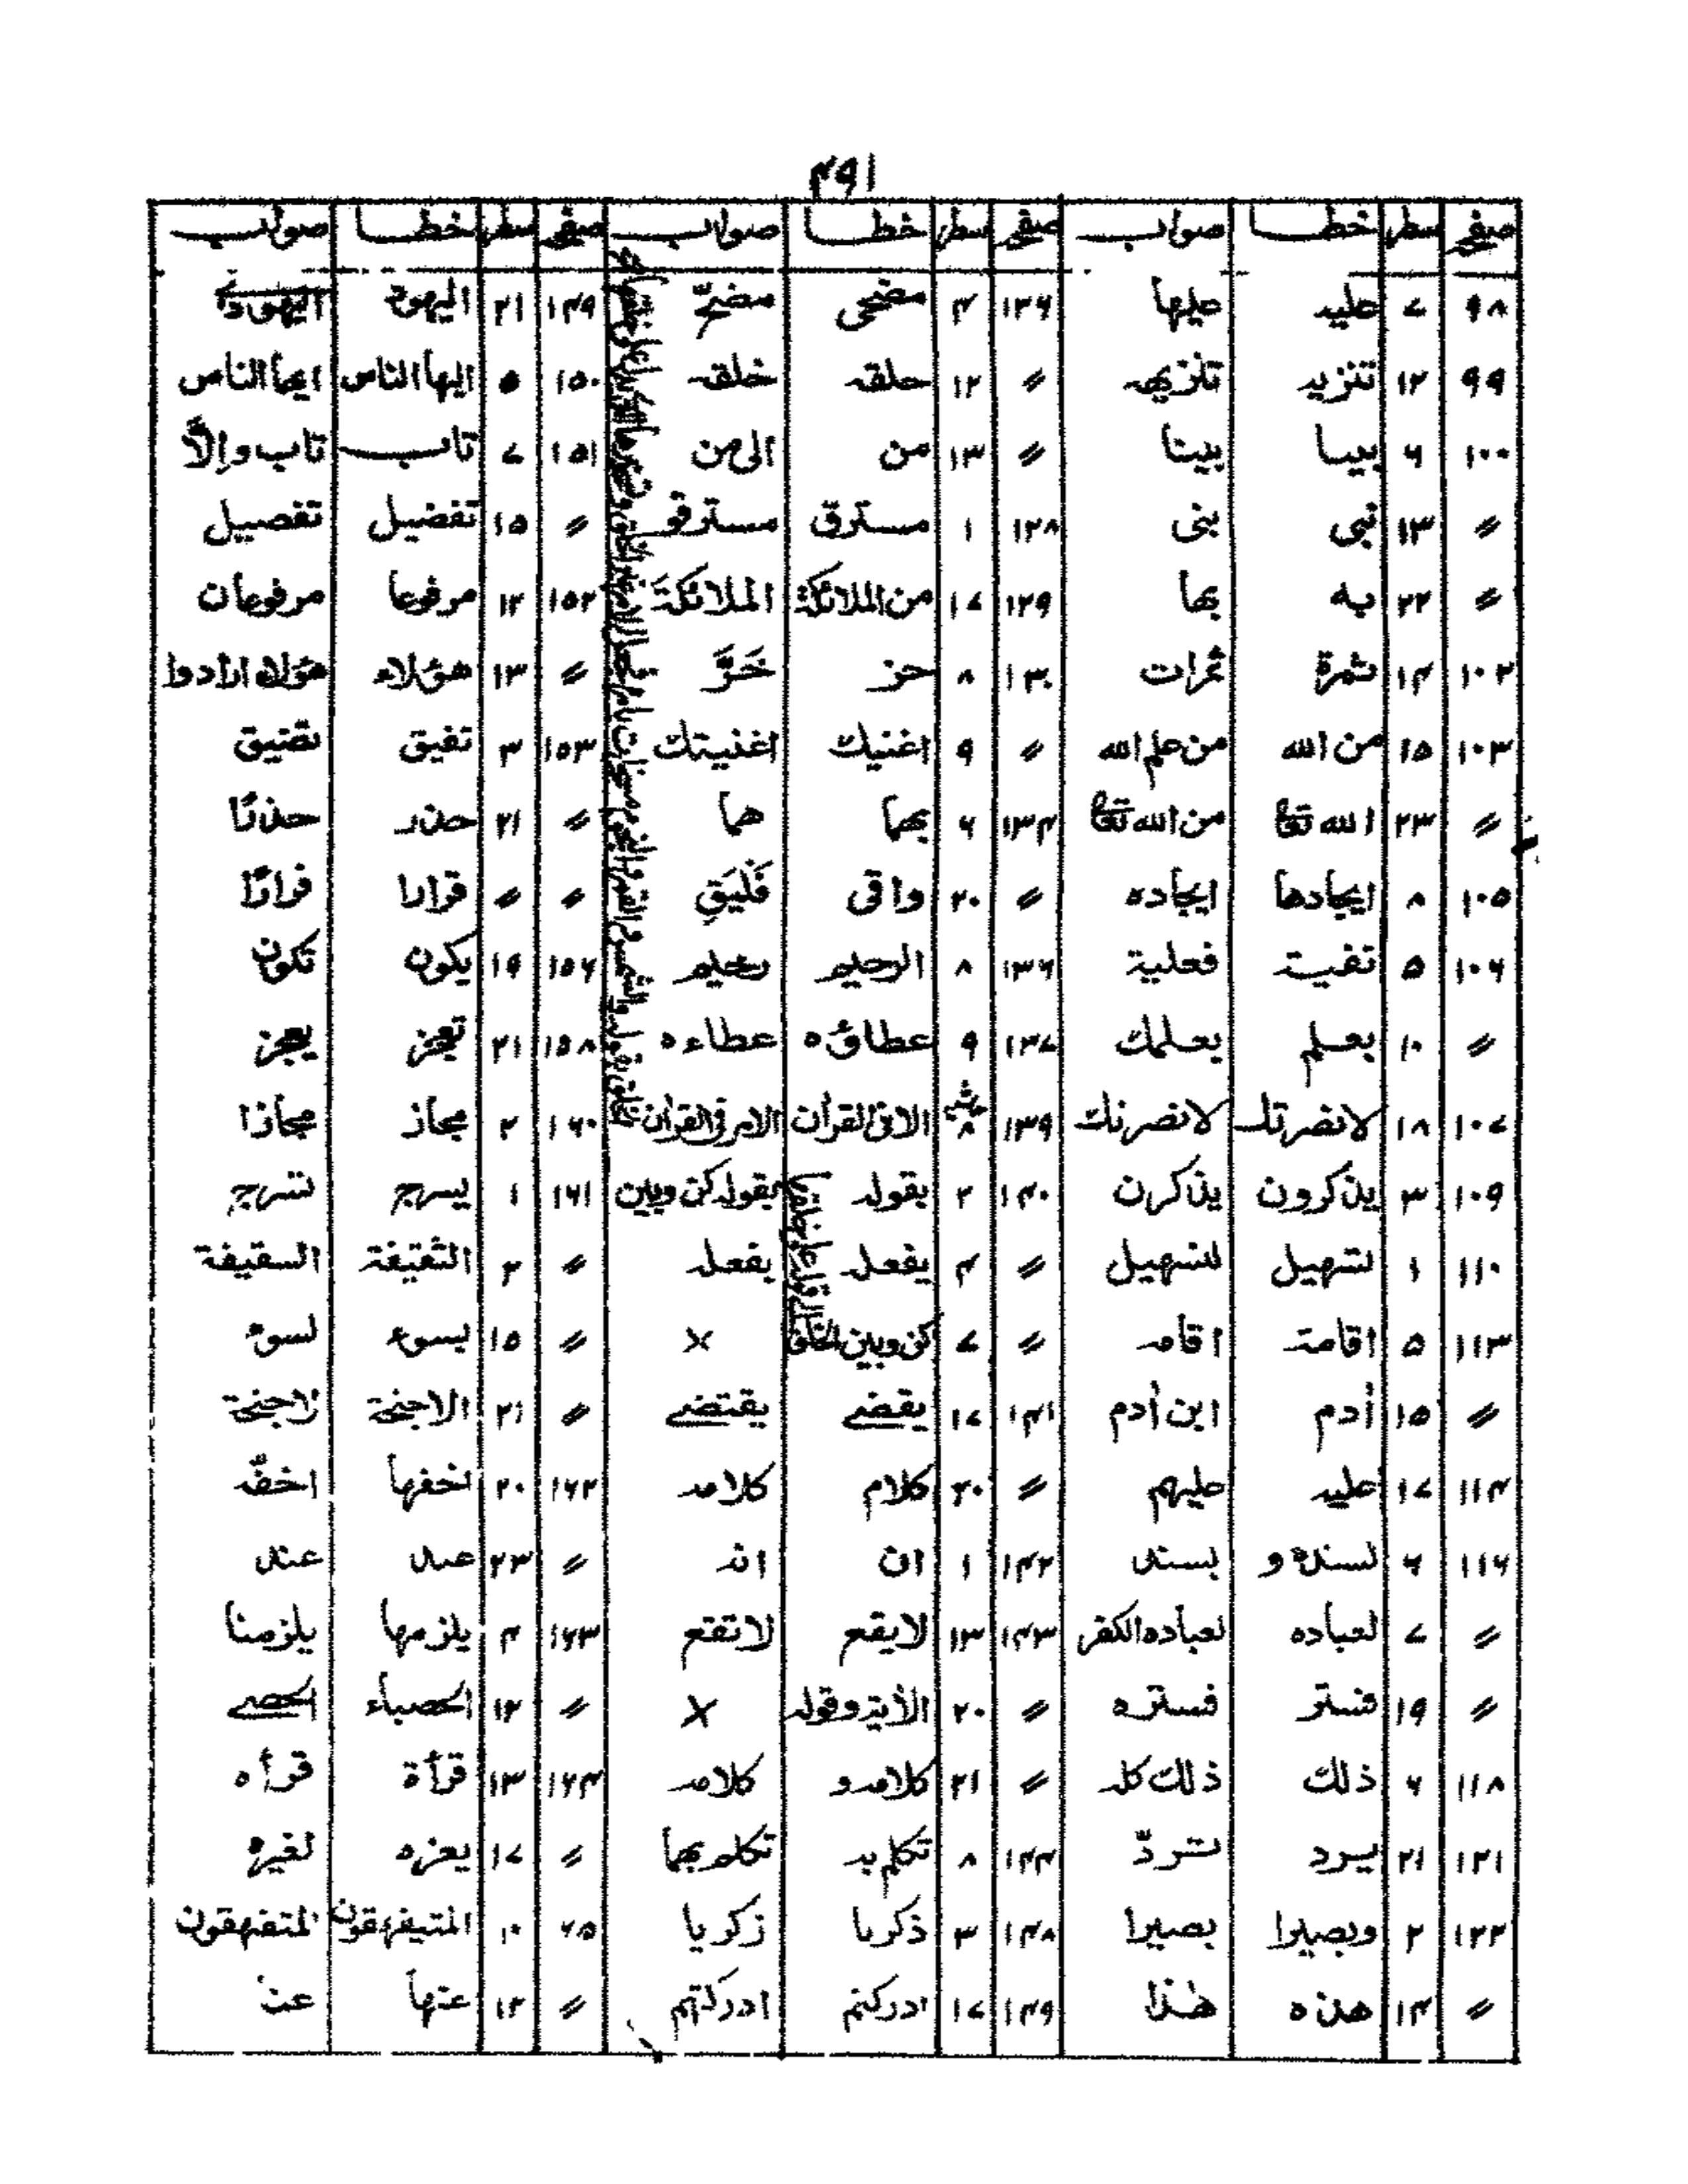 ۴۹۱
صفحہ سطر خطا صواب صفحہ سطر خطا صواب صفحہ سطر خطا صواب
۹۸ ۷ علیہ علیها ۱۲۶ ۴ مضحی مضحّ ۱۴۹ ۲۱ الیهود
۹۹ ۱۲ تنزیہ تنزیهہ 〃 ۱۲ حلقہ خلقہ ۱۵۰ ۵ الیها الناس ایها الناس
۱۰۰ ۶ بیسا بیتا 〃 ۱۳ من الی من ۱۵۱ ۷ تاب تاب والّا
〃 ۱۳ نبی بنی ۱۲۸ ۱ مسترق مسترقو 〃 ۱۵ تفضیل تفصیل
〃 ۲۲ به بها ۱۲۹ ۱۷ من الملائکة الملائکةَ ۱۵۲ ۱۲ مرفوعا مرفوعان
۱۰۲ ۱۴ ثمرة ثمرات ۱۳۰ ۸ حز خَرَّ 〃 ۱۳ هؤلاء هؤلاء ارادوا
۱۰۳ ۱۵ من الله من علم الله 〃 ۹ اغنیك اغنیتك ۱۵۳ ۳ تفیق تضیق
〃 ۲۳ الله تعالی من الله تعالی ۱۳۴ ۶ بهما هما 〃 ۲۱ حذر حذرًا
۱۰۵ ۸ ایجادها ایجاده 〃 ۲۰ واقی فَلیَقِ 〃 〃 قرارا فرارًا
۱۰۶ ۵ تفیة فعلیة ۱۳۶ ۸ الرحلیم رحلیم ۱۵۶ ۱۹ یکون تکون
〃 ۱۰ یعلم یعلمك ۱۳۷ ۹ عطاؤه عطاءه ۱۵۸ ۲۱ تعجز یعجز
۱۰۷ ۱۸ لانصرتك لانصرنك ۱۳۹ ۸ الافی القرأن الامر فی القرأن ۱۶۰ ۲ مجاز مجازا
۱۰۹ ۳ یذکرون یذکرن ۱۴۰ ۲ بقولہ بقولہ کن وبین ۱۶۱ ۱ یسرج تسرج
۱۱۰ ۱ لتسهیل للتسهیل 〃 ۴ یفعل یفعلہ 〃 ۲ الثقیفة السقیفة
۱۱۳ ۵ اقامة اقامہ 〃 ۷ کن وبین الخلق × 〃 ۱۵ یسوء لسوء
〃 ۱۵ أدم ابن أدم ۱۴۱ ۱۷ یقضے یقتضے 〃 ۲۱ الاجنحة لاجنحة
۱۱۴ ۱۷ علیہ علیهم 〃 ۲۰ کلام کلامہ ۱۶۲ ۲۰ اخفها اخفّہ
۱۱۶ ۶ لسنده و بسند ۱۴۲ ۱ ان انہ 〃 ۲۳ عبد عند
〃 ۷ لعباده لعباده الکفر ۱۴۳ ۱۳ لایقع لاتقع ۱۶۳ ۴ یلزمها یلزمنا
〃 ۱۹ فستر فستره 〃 ۲۰ الأیة وقولہ × 〃 ۱۲ الحصباء الحصے
۱۱۸ ۶ ذلك ذلك کلہ 〃 ۲۱ کلامہ و کلامہ ۱۶۴ ۱۳ قرأة قرأه
۱۲۱ ۲۱ یرد تردّ ۱۴۴ ۸ تکلم بہ تکلم بهما 〃 ۱۷ یعزه لغیره
۱۲۲ ۲ وبصیرا بصیرا ۱۴۸ ۳ ذکریا زکریا ۶۵ ۱۰ المتیفهقون المتفیهقون
〃 ۱۴ هذه هذا ۱۴۹ ۱۷ ادرکتم ادرکتهم 〃 ۱۲ عنها عن